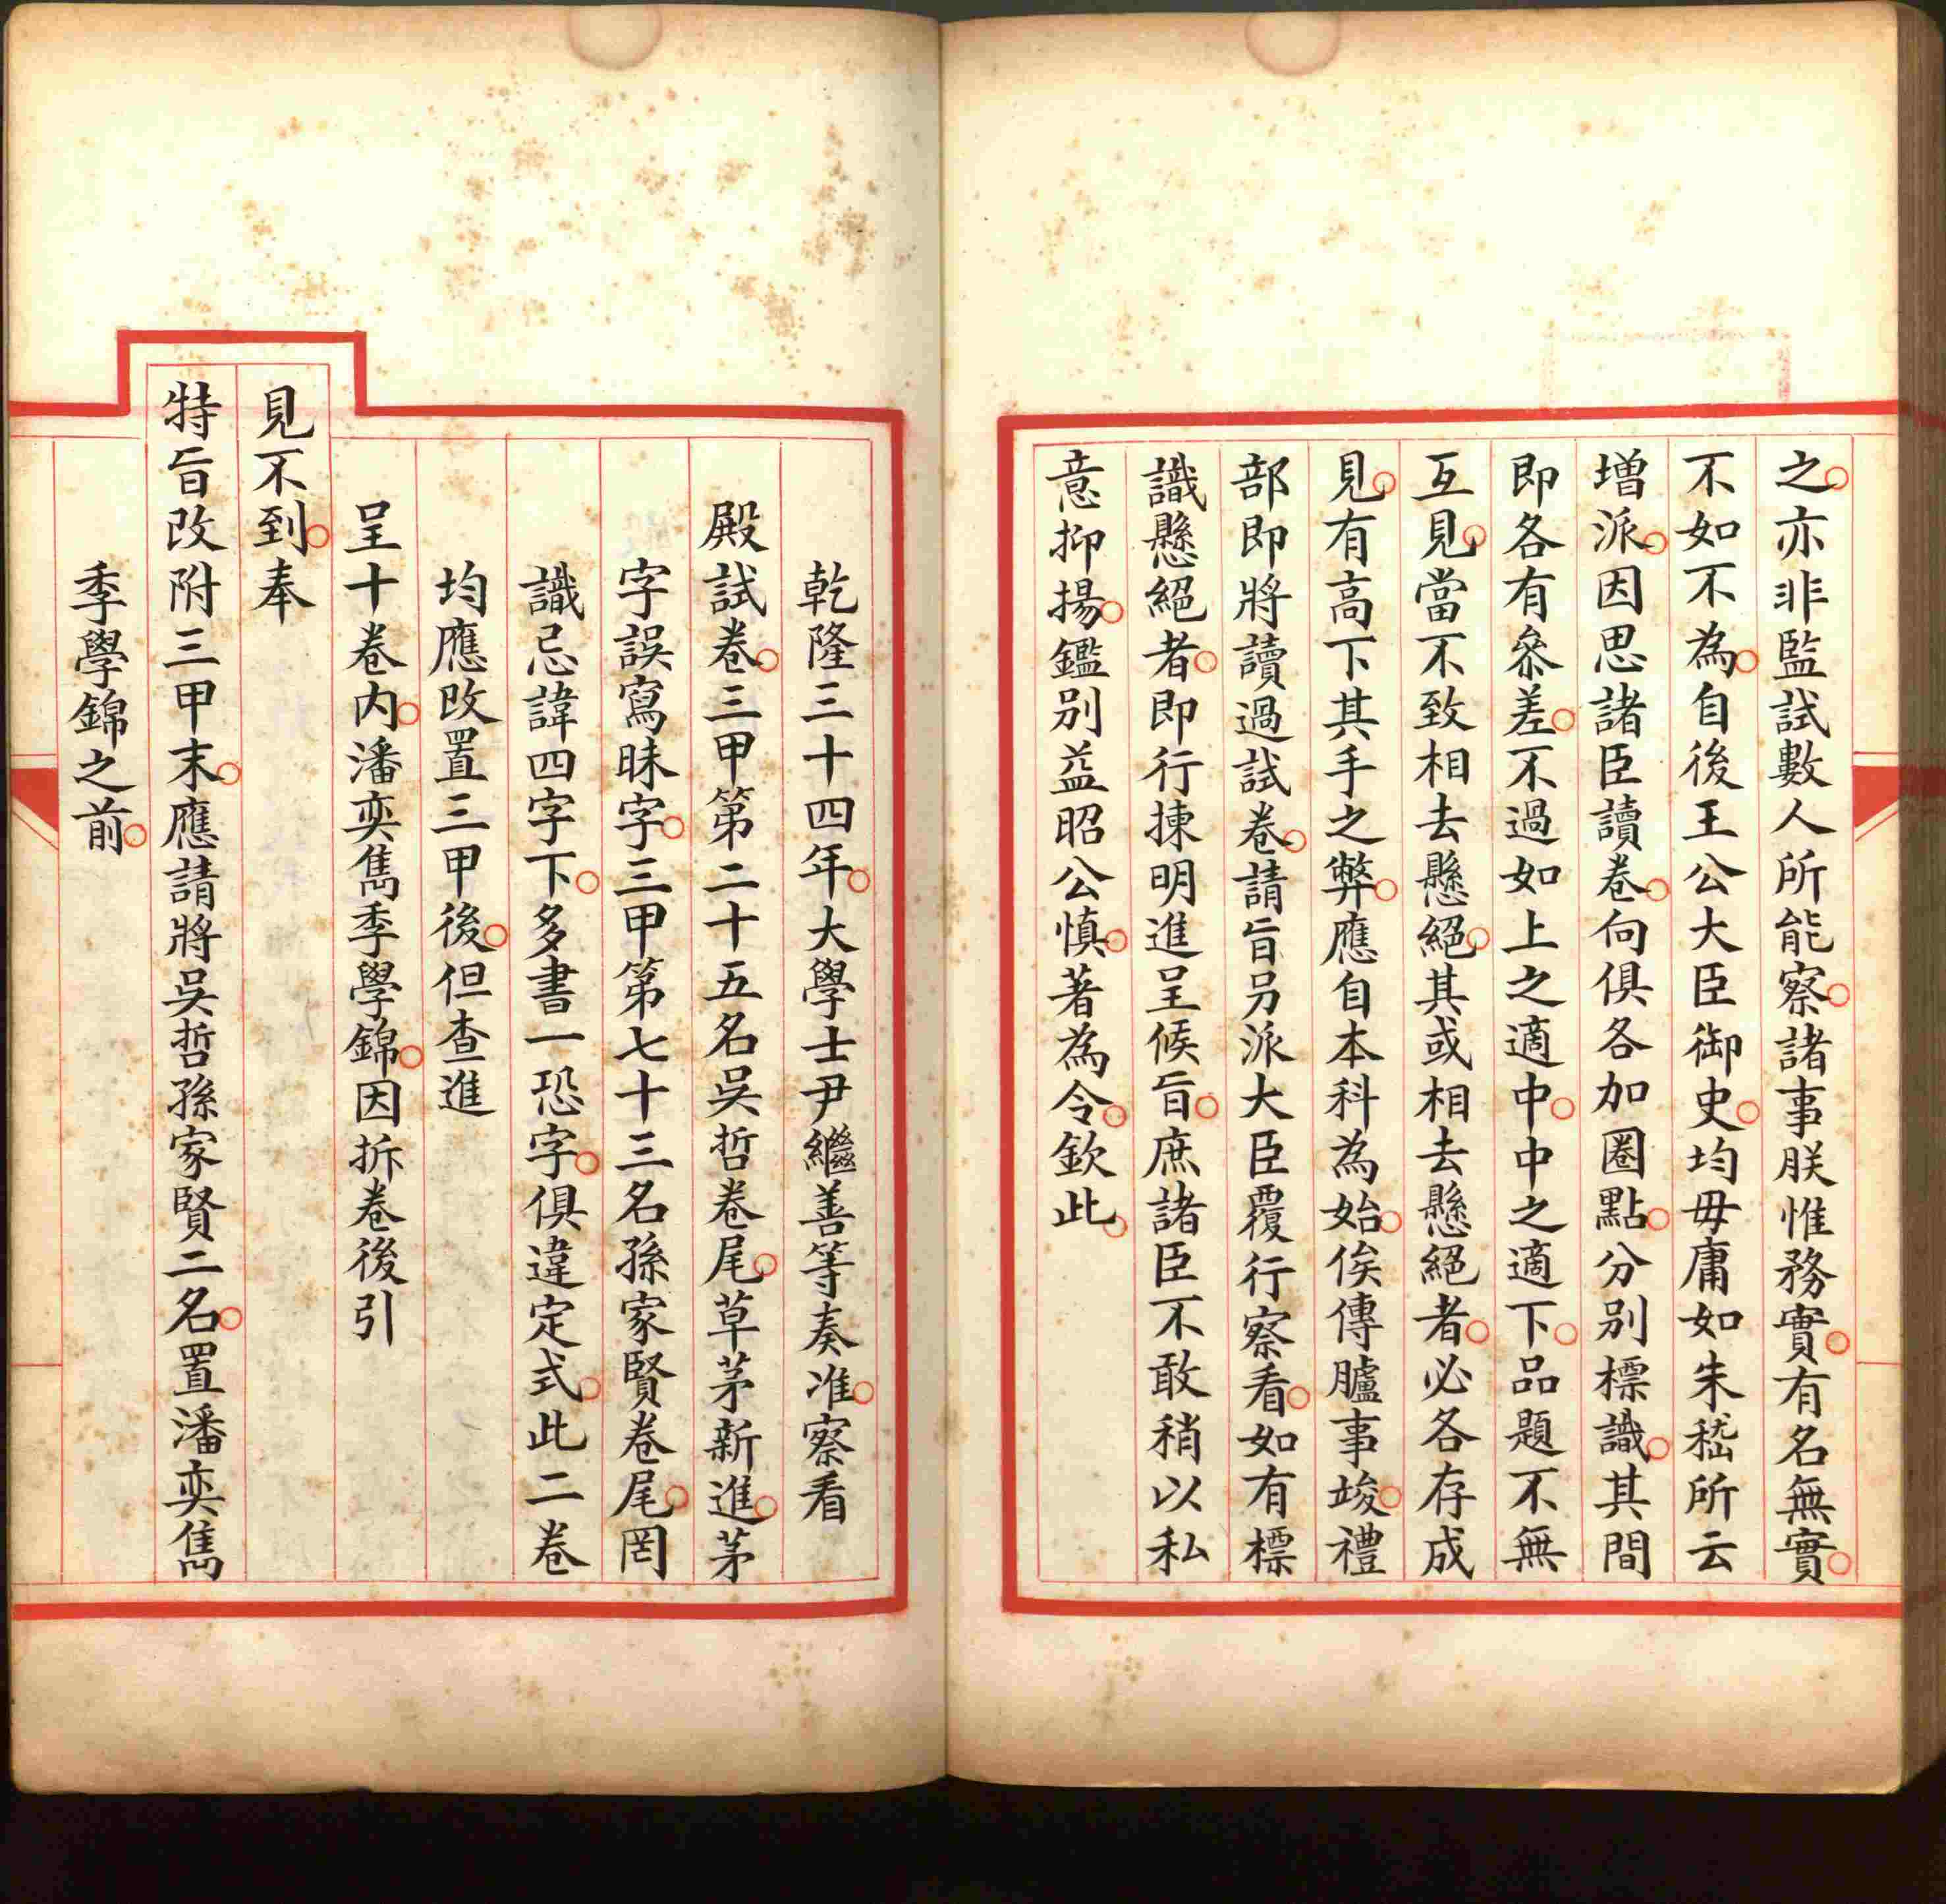 之亦非監試數人所能察諸事朕惟務實有名無實
不如不為自後王公大臣御史均毋庸如朱嵇所云
增派因思諸臣讀卷向俱各加圈點分別標識其間
即各有參差不過如上之適中中之適下品題不無
互見當不致相去懸絕其或相去懸絕者必各存成
見有高下其手之弊應自本科為始俟傳臚事竣禮
部即將讀過試卷請旨另派大臣覆行察看如有標
識懸絕者即行揀明進呈候旨庶諸臣不敢稍以私
意抑揚鑑別益昭公慎著為令欽此
乾隆三十四年大學士尹繼善等奏准察看
殿試卷三甲第二十五名吳哲卷尾草茅新進茅
字誤寫昧字三甲第七十三名孫家賢卷尾罔
識忌諱四字下多書一恐字俱違定式此二卷
均應改置三甲後但查進
呈十卷内潘奕雋季學錦因拆卷後引
見不到奉
特旨改附三甲末應請將吳哲孫家賢二名置潘奕雋
季學錦之前